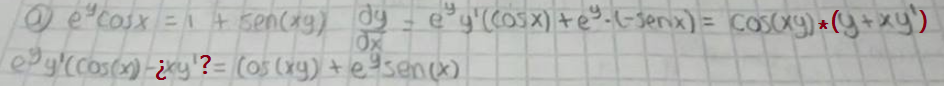 a) e^y cosx = 1 + sen(xy) dy/dx = e^y y'(cosx) + e^y · (-senx) = cos(xy)*(y+xy')
e^y y'(cos(x) - ¿xy'? = cos(xy) + e^y sen(x)